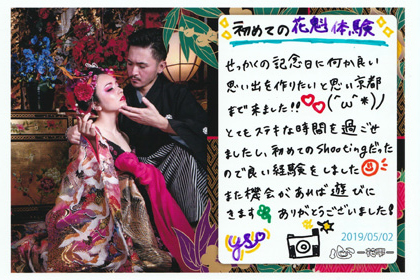 初めての花魁体験
せっかくの記念日に何か良い
思い出を作りたいと思い京都
まで来ました!!♡♡(^ω^*)ノ
とてもステキな時間を過ごせ
ましたし、初めてのshootingだった
ので良い経験をしました
また機会があれば遊びに
きます ありがとうございました!
2019/05/02